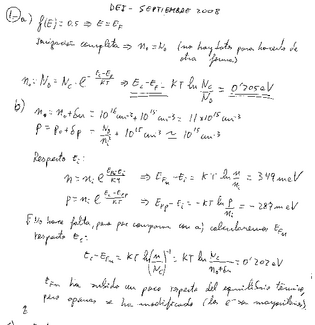 DEI - SEPTIEMBRE 2008
1-a) f(E) = 0.5 ⇒ E = E_F
Ionización completa ⇒ n₀ = N_D (no hay datos para hacerlo de
otra forma)
n₀ = N_D = N_C · e^(-(E_C-E_F)/KT) ⇒ E_C - E_F = KT ln N_C/N_D = 0'205 eV
b) n = n₀ + δn = 10¹⁶ cm⁻³ + 10¹⁵ cm⁻³ = 11×10¹⁵ cm⁻³
10¹⁵ cm⁻³ ≃ 10¹⁵ cm⁻³
Respecto E_i:
⇒ E_Fn - E_i = KT ln n/n_i = 349 meV
⇒ E_Fp - E_i = -KT ln p/n_i = -287 meV
para comparar con a) calcularemos E_Fn
respecto E_C:
E_C - E_Fn = = KT ln N_C/(n₀+δn) = 0'202 eV
E_Fn ha subido un poco respecto del equilibrio térmico,
pero apenas se ha modificado (los e⁻ son mayoritarios)